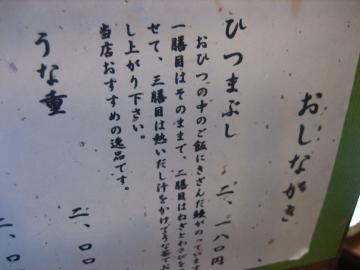 おしながき
ひつまぶし 二、一八〇円
おひつの中のご飯にきざんだ鰻がのっています
一膳目はそのままで、二膳目はねぎとわさびを
せて、三膳目は熱いだし汁をかけてうな茶でお
し上がり下さい。
当店おすすめの逸品です。
うな重
二、〇〇
二、〇